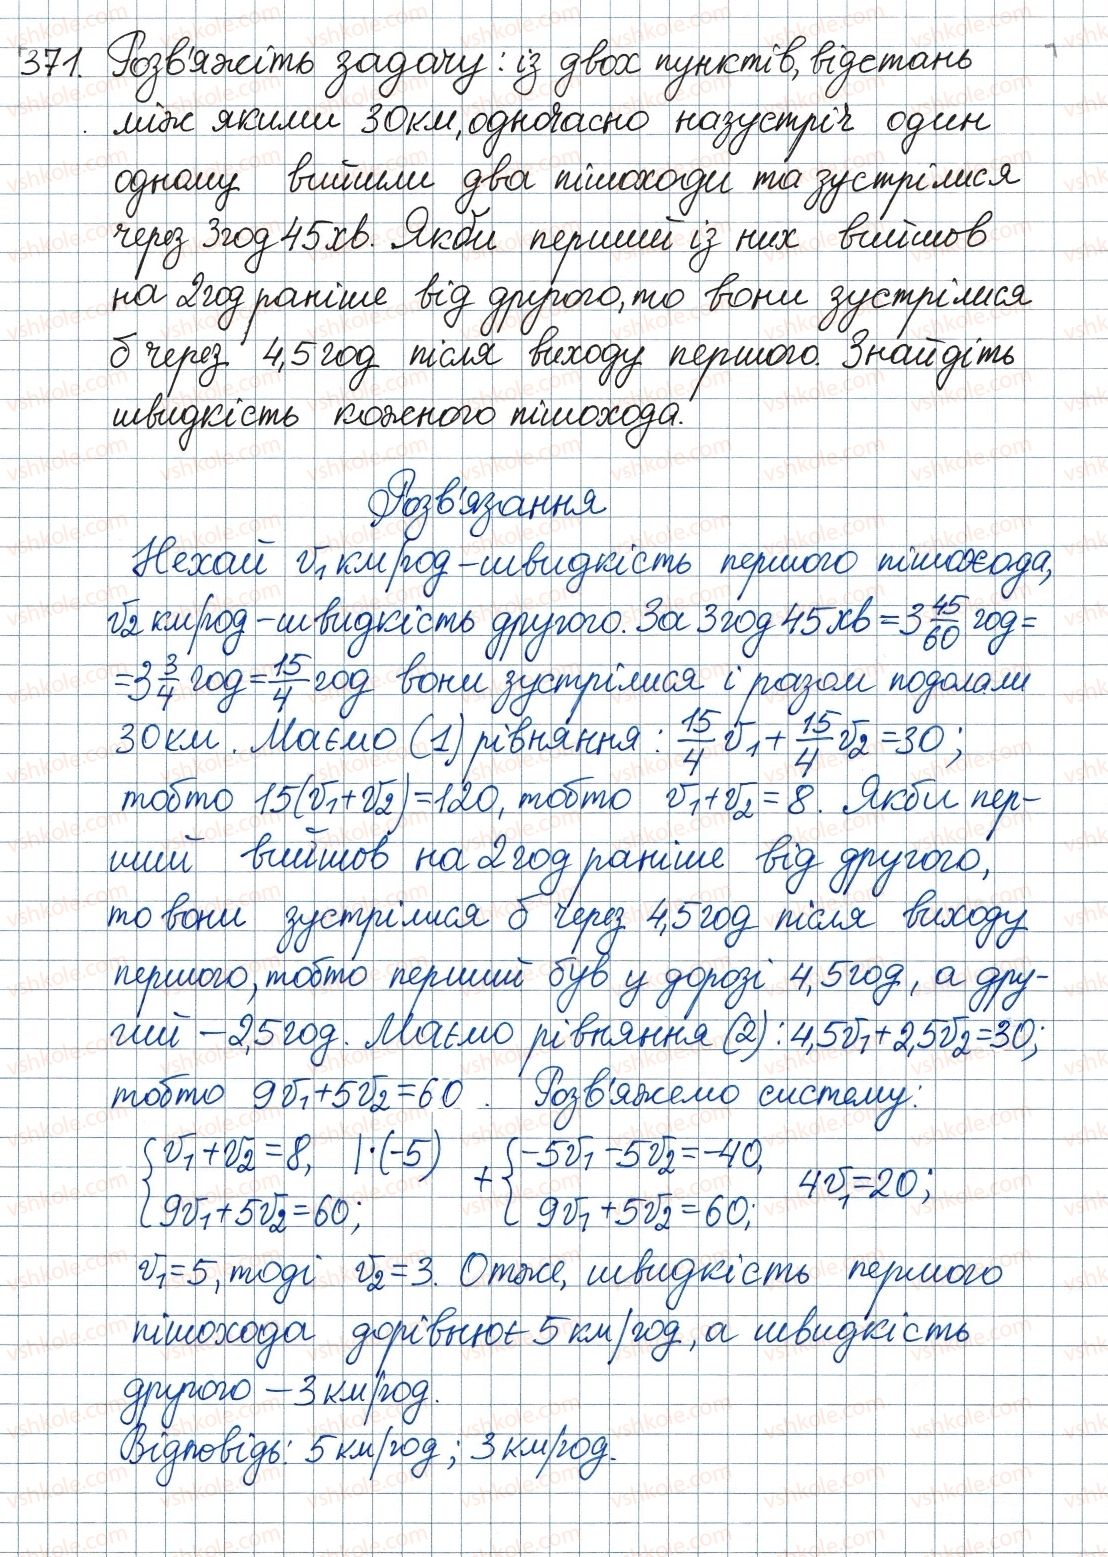 371. Розв'яжіть задачу: із двох пунктів, відстань
між якими 30км, одночасно назустріч один
одному вийшли два пішоходи та зустрілися
через 3год 45хв. Якби перший із них вийшов
на 2год раніше від другого, то вони зустрілися
б через 4,5год після виходу першого. Знайдіть
швидкість кожного пішохода.
Розв'язання
Нехай v₁ км/год – швидкість першого пішохода,
v₂ км/год – швидкість другого. За 3год 45хв = 3 45/60 год =
= 3 3/4 год = 15/4 год вони зустрілися і разом подолали
30км. Маємо (1) рівняння: 15/4 v₁ + 15/4 v₂ = 30;
тобто 15(v₁+v₂)=120, тобто v₁+v₂=8. Якби пер-
ший вийшов на 2год раніше від другого,
то вони зустрілися б через 4,5год після виходу
першого, тобто перший був у дорозі 4,5год, а дру-
гий – 2,5год. Маємо рівняння (2): 4,5v₁+2,5v₂=30;
тобто 9v₁+5v₂=60. Розв'яжемо систему:
{ v₁+v₂=8, |·(-5) + { -5v₁-5v₂=-40, 4v₁=20;
9v₁+5v₂=60; 9v₁+5v₂=60;
v₁=5, тоді v₂=3. Отже, швидкість першого
пішохода дорівнює 5км/год, а швидкість
другого – 3км/год.
Відповідь: 5км/год; 3км/год.
vshkole.com